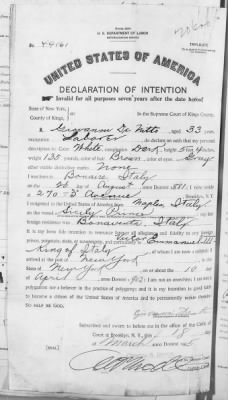 U. S. DEPARTMENT OF LABOR
TRIPLICATE
No. 44161
UNITED STATES OF AMERICA
DECLARATION OF INTENTION
Invalid for all purposes seven years after the date hereof
State of New York,
County of Kings,
In the Supreme Court of Kings County.
I, Giovanni De Nitto, aged 33 years,
occupation Laborer, do declare on oath that my personal
description is: Color White, complexion Dark, height
weight 138 pounds, color of hair Brown, color of eyes Grey
other visible distinctive marks None
I was born in Bonaire Italy
on the 26 day of August, anno Domini 1881; I now reside
at 270
I emigrated to the United States of America from Naples Italy
on the vessel Sicily Prince; my last
foreign residence was Italy
It is my bona fide intention to renounce forever all allegiance and fidelity to any foreign
prince, potentate, state, or sovereignty, and particularly to Victor Emmanuel III
King of Italy, of whom I am now a subject; I
arrived at the port of New York, in the
State of New York, on or about the 10 day
of April, anno Domini; I am not an anarchist; I am not a
polygamist nor a believer in the practice of polygamy; and it is my intention in good faith
to become a citizen of the United States of America and to permanently reside therein:
SO HELP ME GOD.
Subscribed and sworn to before me in the office of the Clerk of
Court at Brooklyn, N. Y., this 18 day
of March, anno Domini
[SEAL]